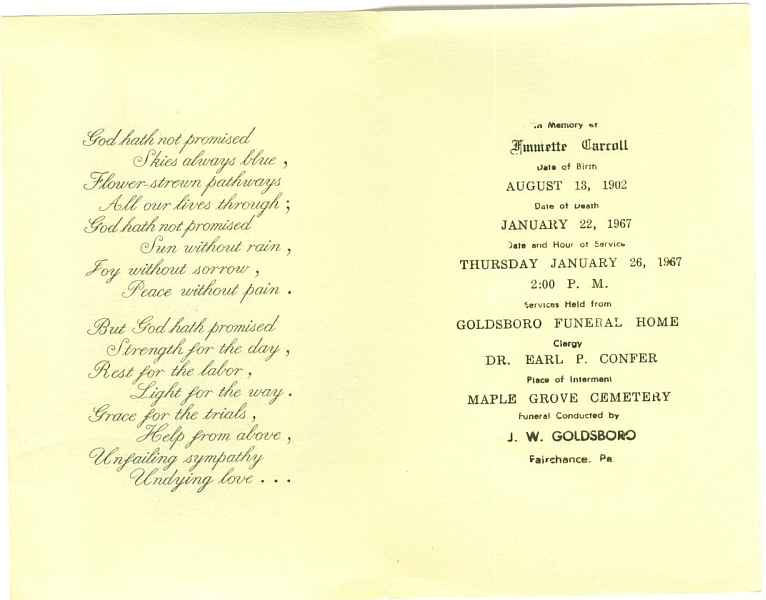 God hath not promised
Skies always blue,
Flower-strewn pathways
All our lives through;
God hath not promised
Sun without rain,
Joy without sorrow,
Peace without pain.
But God hath promised
Strength for the day,
Rest for the labor,
Light for the way.
Grace for the trials,
Help from above,
Unfailing sympathy
Undying love...
In Memory of
Emmette Carroll
Date of Birth
AUGUST 13, 1902
Date of Death
JANUARY 22, 1967
Date and Hour of Service
THURSDAY JANUARY 26, 1967
2:00 P. M.
Services Held from
GOLDSBORO FUNERAL HOME
Clergy
DR. EARL P. CONFER
Place of Interment
MAPLE GROVE CEMETERY
Funeral Conducted by
J. W. GOLDSBORO
Fairchance, Pa.